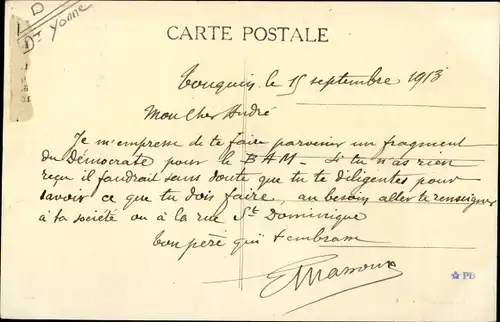 D
Dt Yonne
CARTE POSTALE
Touquin, le 15 septembre 1913
Mon Cher André
Je m'empresse de te faire parvenir un fragment
du Démocrate pour le BAM - Si tu n'as rien
reçu il faudrait sans doute que tu te diligentes pour
savoir ce que tu dois faire, au besoin aller te renseigner
à ta société ou à la rue St Dominique
Ton père qui t'embrasse
PB